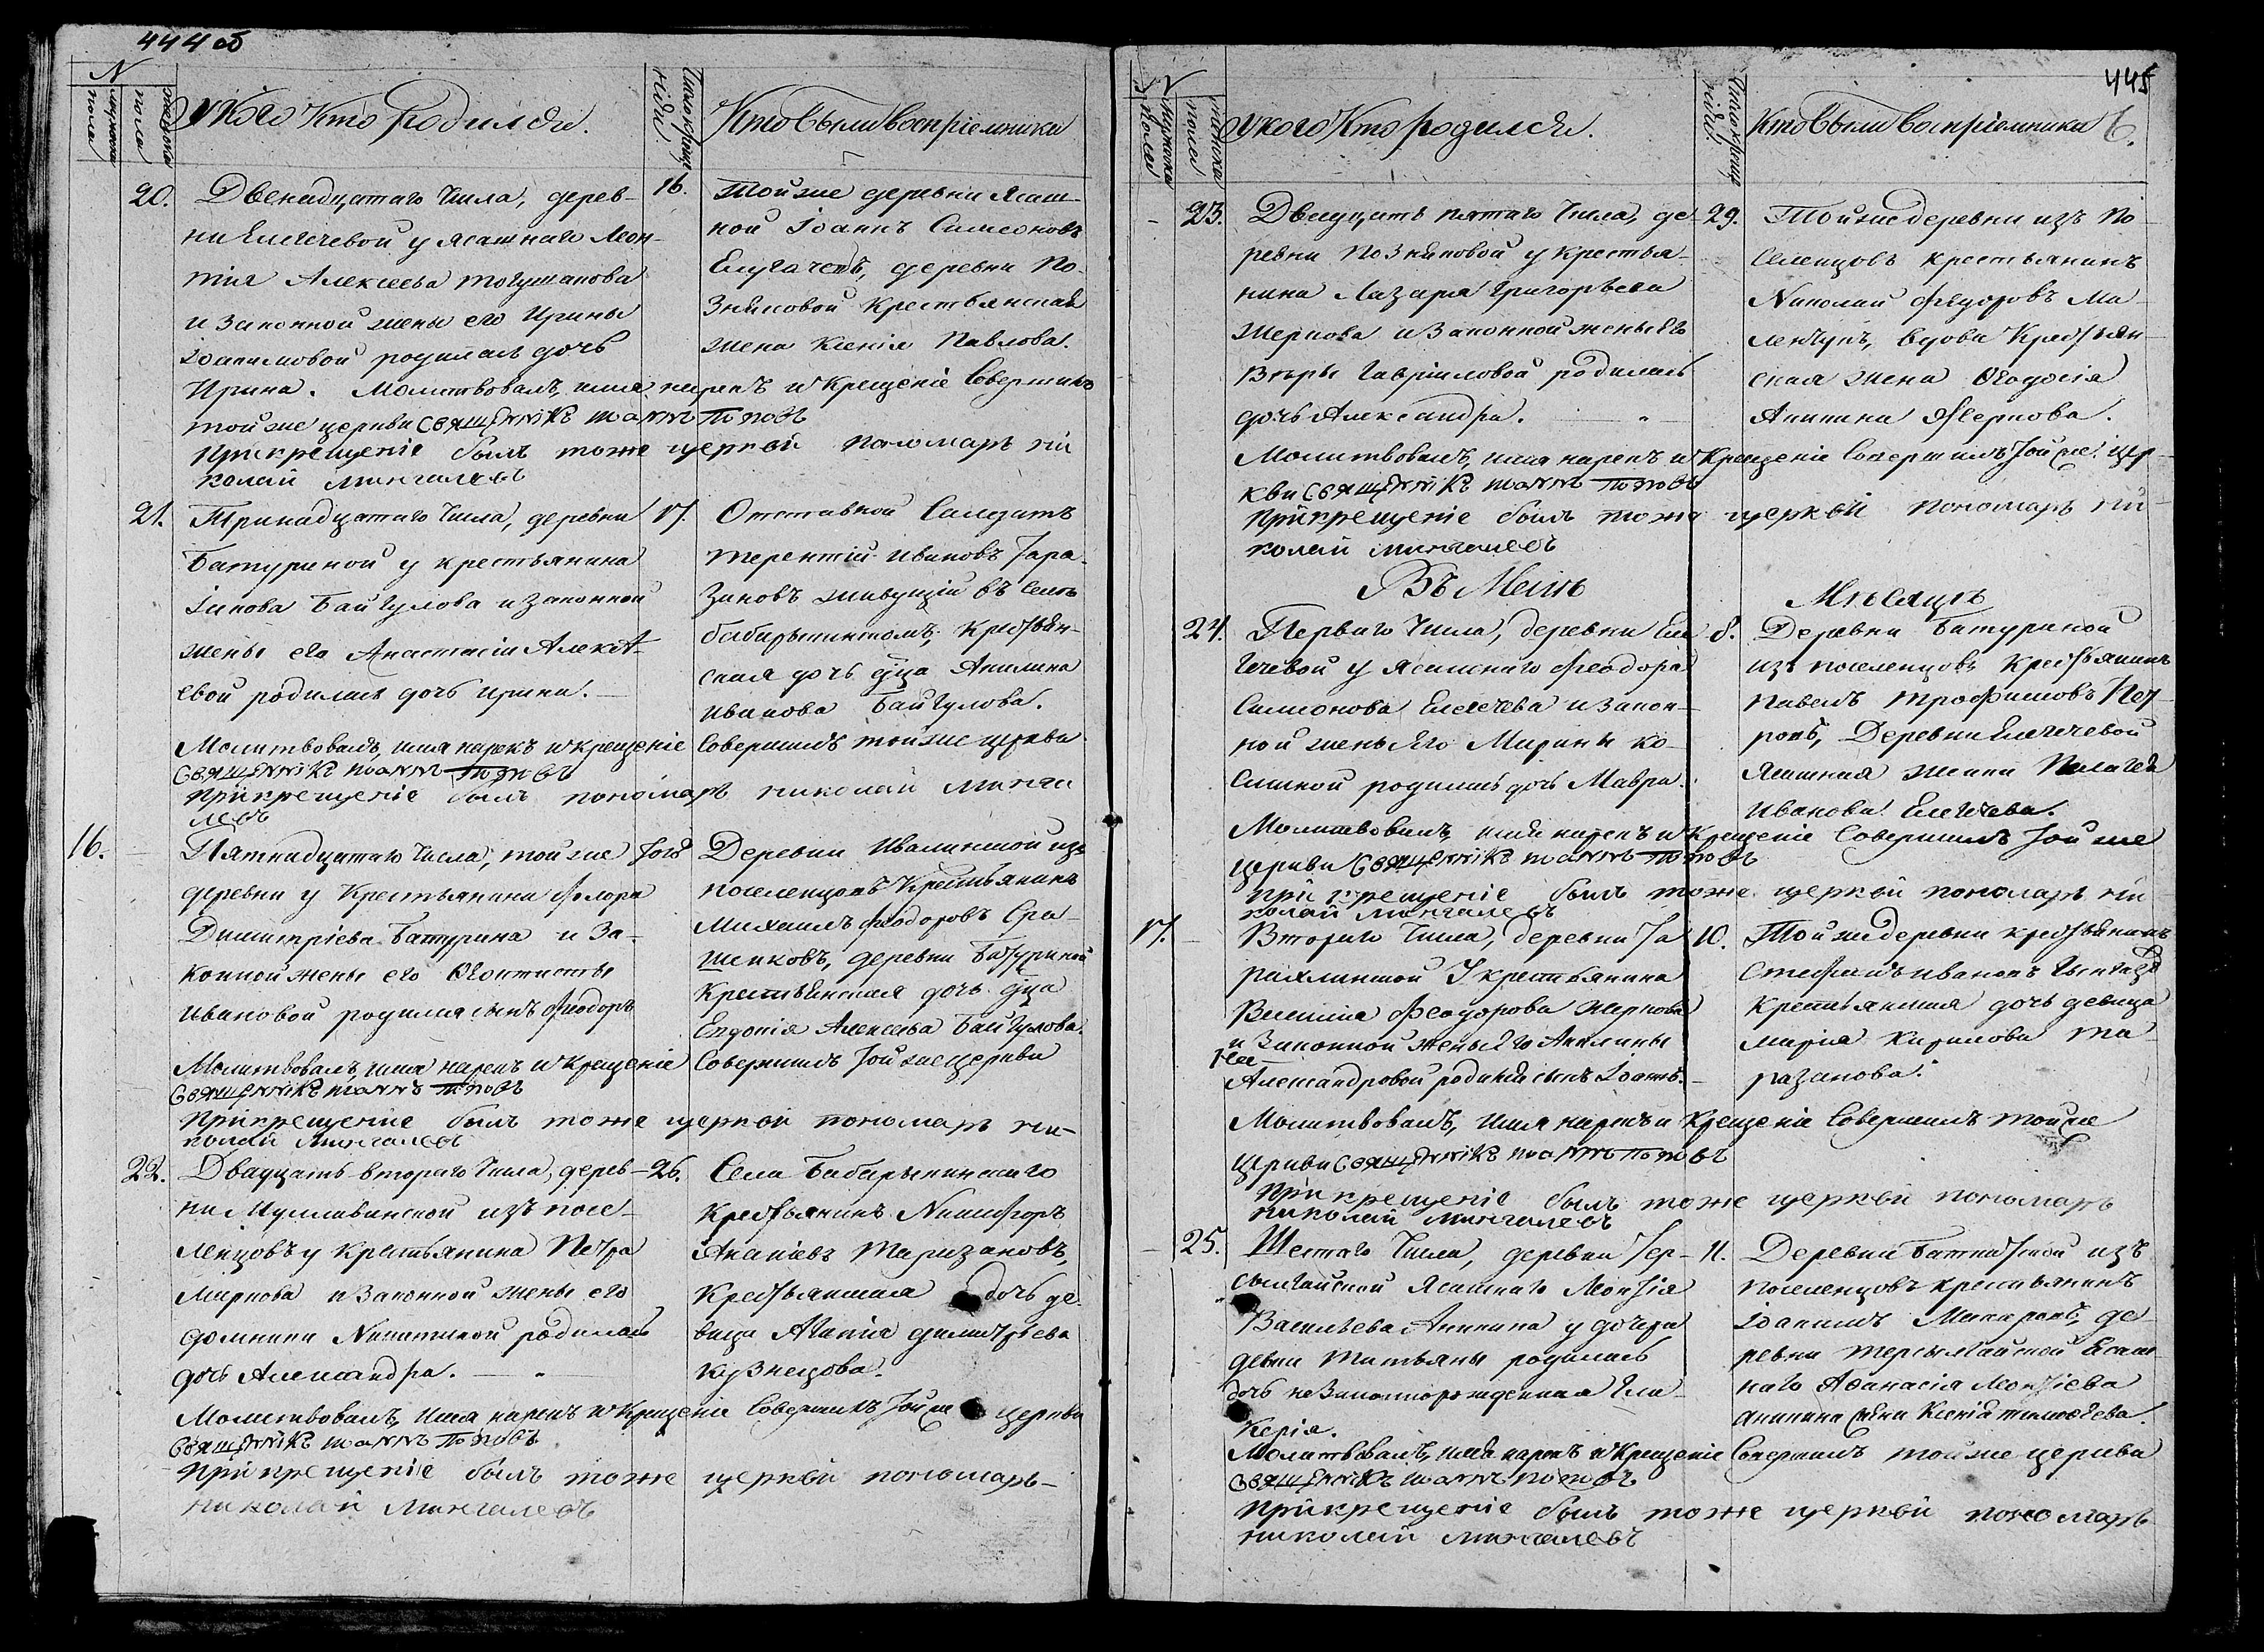 444 об
N
мужска пола
женска пола
У Кого Кто Родился.
Число крещенія.
Кто Были воспріемники
20.
Двенадцатаго Числа, дерев-
ни Елегечевой у Ясашнаго Леон-
тія Алексеева
и Законной жены его Ирины
Іоакимовой родилась дочь
Ирина. Молитвовалъ, имя нарекъ и Крещеніе Совершилъ
той же церкви Священникъ Іоаннъ Поповъ
При крещеніе былъ тоже церкви пономарь ни
колай Мингалевъ
16.
Той же деревни Ясаш-
ной Іоаннъ Симеоновъ
Елугачевъ, деревни По-
зняковой Крестьянская
жена Ксенія Павлова.
21.
Тринадцатаго Числа, деревни
Батуриной у крестьянина
Іакова Байгулова и законной
жены его Анастасіи Алексе-
евой родилась дочь Ирина. —
Молитвовалъ, имя нарекъ и крещеніе Совершилъ той же церкви
Священникъ Іоаннъ Поповъ
При крещеніе былъ пономарь николай Минга
левъ
17.
Отставной Салдатъ
Терентій Ивановъ Тара-
зановъ живущій въ Селѣ
Бабарыкинскомъ, Крестьян-
ская дочь д‍ѣца Акилина
Иванова Байгулова.
16.
Пятнадцатаго Числа, той же
деревни у Крестьянина Флора
Димитріева Батурина и За-
конной жены его Ѳеоктисты
Ивановой родился сынъ Феодоръ
Молитвовалъ, имя нарекъ и Крещеніе Совершилъ той же Церкви
Священникъ Іоаннъ Поповъ
При крещеніе былъ тоже церкви пономарь ни-
колай Мингалевъ
того
Деревни Ивлинской изъ
поселенцовъ Крестьянинъ
Михаилъ Феодоровъ
деревни Батуриной
Крестьянская дочь дѣца
Евдокія Алексеева Байгулова.
22.
Двадцать втораго Числа, дерев-
ни Муллавинской изъ посе-
ленцовъ у Крестьянина Петра
Миркова и Законной жены его
Домники Никитиной родилась
дочь Александра. —
Молитвовалъ, имя нарекъ и Крещеніе Совершилъ той же церкви
Священникъ Іоаннъ Поповъ
При крещеніе былъ тоже церкви пономарь
николай Мингалевъ
26.
Села Бабарыкинскаго
Крестьянинъ Никифоръ
Ананіевъ Таразановъ,
Крестьянская дочь де-
вица Агапія Димитріева
Кузнецова.
445
N
мужска пола
женска пола
У кого Кто родился.
Число крещенія.
Кто Были воспріемники
6.
23.
Двадцать пятаго Числа, де-
ревни Позняковой у крестья-
нина Лазаря Григорьева
Жернова и Законной жены Его
Вѣры Гавріиловой родилась
дочь Александра. —
Молитвовалъ, имя нарекъ и Крещеніе Совершилъ той же цер-
кви Священникъ Іоаннъ Поповъ
При крещеніе былъ тоже церкви пономарь ни-
колай Мингалевъ
29.
Той же деревни изъ По-
селенцовъ крестьянинъ
Николай Федоровъ Ма-
вдова Крестьян-
ская жена Ѳеодосія
Аникина Жернова.
Въ Маиѣ Мѣсяцѣ
24.
Перваго Числа, деревни Еле-
гечевой у Ясашнаго Феодора
Симеонова Елегечева и закон-
ной жены Его Марины Ко-
родилась дочь Мавра.
Молитвовалъ, имя нарекъ и Крещеніе Совершилъ той же
церкви Священникъ Іоаннъ Поповъ
При крещеніе былъ тоже церкви пономарь ни
колай Мингалевъ
8.
Деревни Батуриной
изъ поселенцовъ Крестьянинъ
Павелъ Трофимовъ Пет-
ровъ, Деревни Елегечевой
Ясашная жена Пелагея
Иванова Елегечева.
17.
Втораго Числа, деревни
У крестьянина
Василія Феодорова Жернова
и Законной жены Его Акилины
Александровой родился сынъ Іоаннъ.
Молитвовалъ, имя нарекъ и Крещеніе Совершилъ той же
Церкви Священникъ Іоаннъ Поповъ
При крещеніе былъ тоже церкви пономарь
николай Мингалевъ
10.
Той же деревни крестьянинъ
Стефанъ Ивановъ
Крестьянская дочь девица
Марія Кирилова Та-
разанова.
25.
Шестаго Числа, деревни Тер-
сылгайской Ясашнаго Леонтія
Васильева Аникина у дочери
девки Татьяны родилась
дочь незаконнорожденная Гли-
керія.
Молитвовалъ, имя нарекъ и Крещеніе Совершилъ той же церкви
Священникъ Іоаннъ Поповъ.
При крещеніе былъ тоже церкви пономарь
николай Мингалевъ
11.
Деревни изъ
поселенцовъ крестьянинъ
Іоакимъ Макаровъ, де-
ревни Терсылгайской Ясаш-
наго Афанасія Леонтіева
Аникина жена Ксенія Тимофеева.